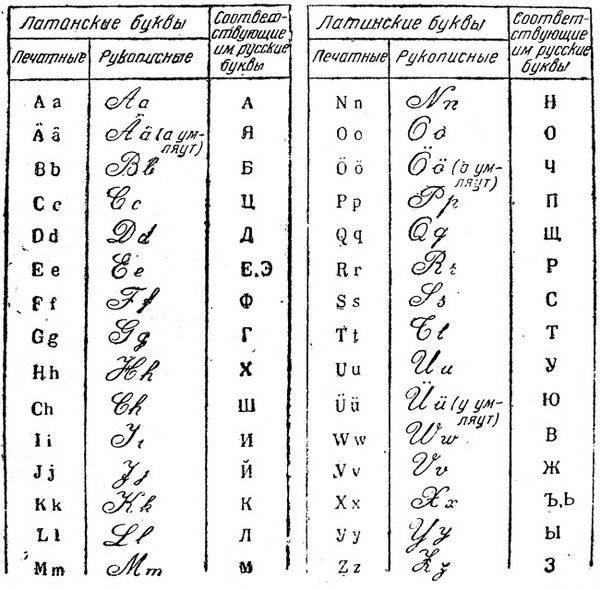 Латанские буквы
Соответ-
ствующие
им русские
буквы
Печатные Рукописные
A a Aa А
Ä ä Ää (а ум-
ляут) Я
B b Bb Б
C c Cc Ц
D d Dd Д
E e Ee Е,Э
F f Ff Ф
G g Gg Г
H h Hh Х
Ch Ch Ш
I i Ii И
J j Jj Й
K k Kk К
L l Ll Л
M m Mm М
Латинские буквы
Соответ-
ствующие
им русские
буквы
Печатные Рукописные
N n Nn Н
O o Oo О
Ö ö Öö (о ум-
ляут) Ч
P p Pp П
Q q Qq Щ
R r Rr Р
S s Ss С
T t Tt Т
U u Uu У
Ü ü Üü (у ум-
ляут) Ю
W w Ww В
V v Vv Ж
X x Xx Ъ,Ь
Y y Yy Ы
Z z Zz З